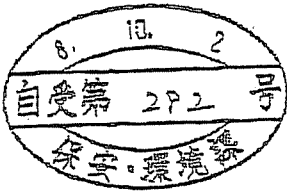 8. 10. 2
自受第 292 号
保安・環境課